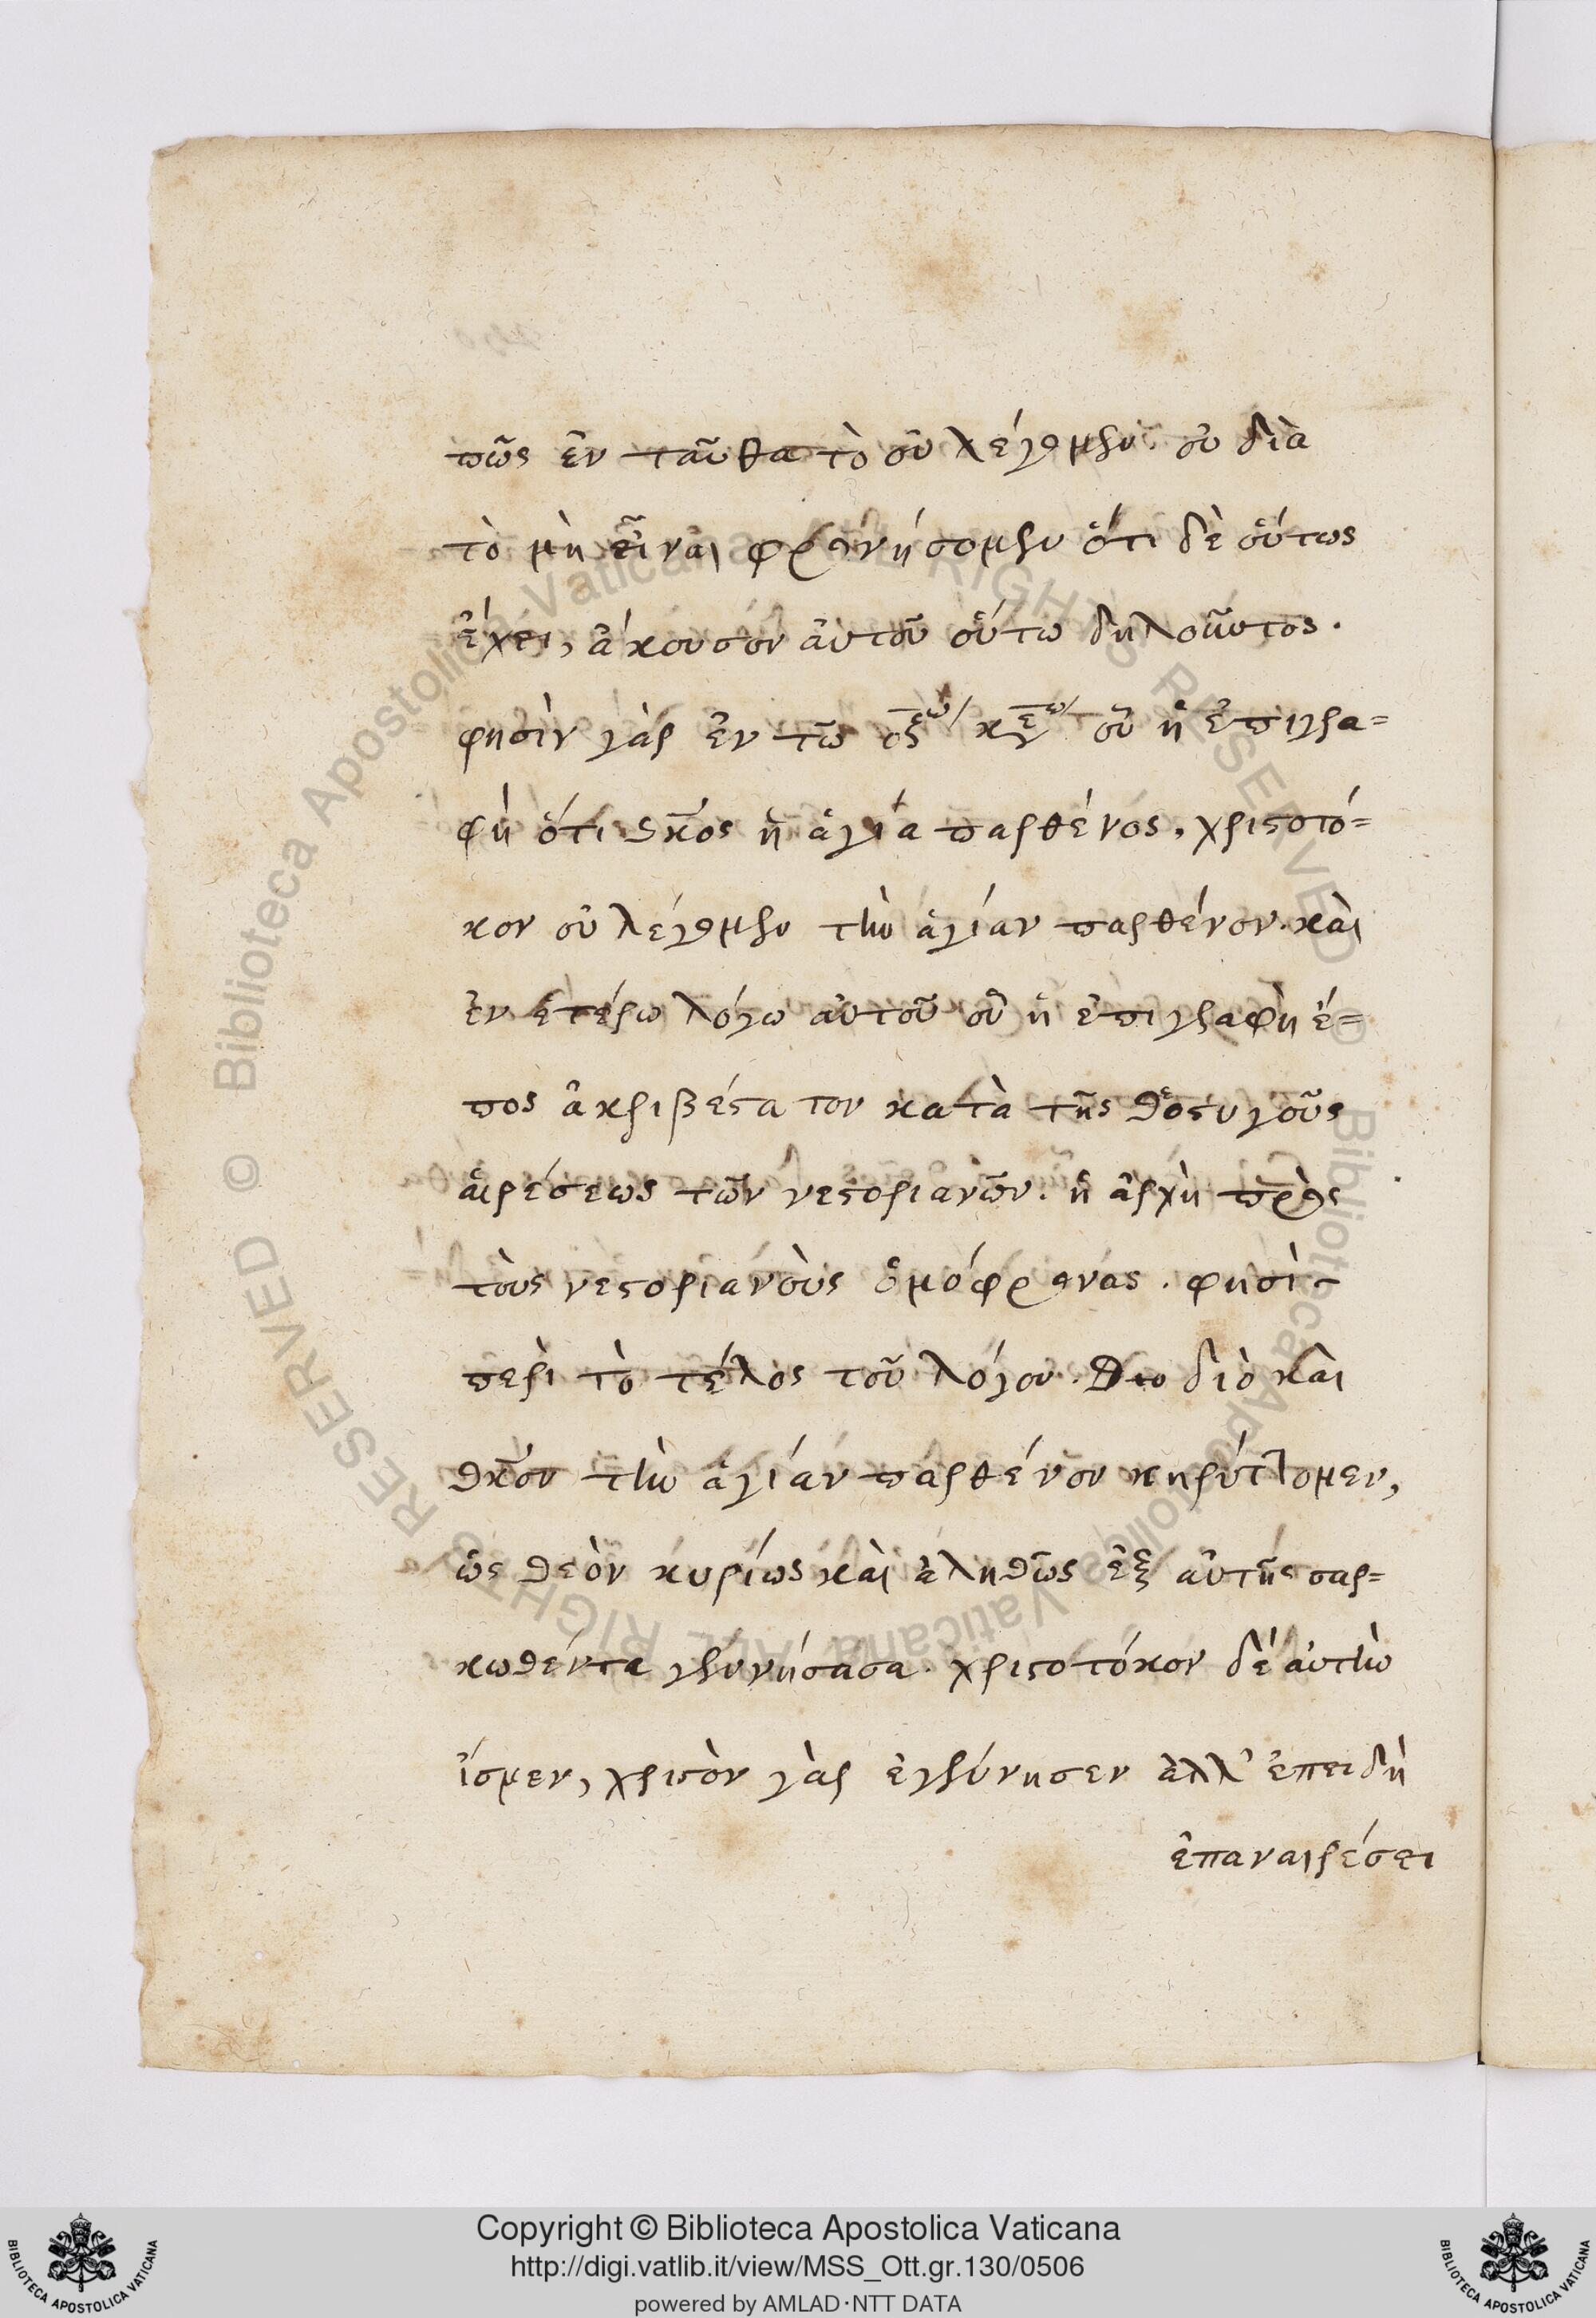 πῶς ἐν ταῦθα τὸ οὐ λέγομεν. οὐ διὰ
τὸ μὴ εἶναι φρονήσομεν ὅτι δὲ οὕτως
ἔχει, ἄκουσον αὐτοῦ οὕτω δηλοῦντος.
φησὶν γὰρ ἐν τῶ κε οὗ ἡ ἐπιγρα=
φὴ ὅτι θκ̅ος ἡ ἁγία παρθένος, χριστοτό=
κον οὐ λέγομεν τὴν ἁγίαν παρθένον. καὶ
ἐν ἑτέρω λόγω αὐτοῦ οὗ ἡ ἐπιγραφὴ ἔ=
πος ἀκριβέστατον κατὰ τῆς θεοστυγοῦς
αἱρέσεως τῶν νεστοριανῶν. ἡ ἀρχὴ πρὸς
τοὺς νεστοριανοὺς ὁμόφρονας. φησὶ
περὶ τὸ τέλος τοῦ λόγου. διὸ καὶ
θκ̅ον τὴν ἁγίαν παρθένον κηρύττομεν,
ὡς θεὸν κυρίως καὶ ἀληθῶς ἐξ αὐτῆς σαρ=
κωθέντα γεννήσασα. χριστοτόκον δὲ αὐτὴν
ἴσμεν, χριστὸν γὰρ ἐγέννησεν ἀλλ' ἐπειδὴ
ἐπαναιρέσει
Copyright © Biblioteca Apostolica Vaticana
http://digi.vatlib.it/view/MSS_Ott.gr.130/0506
powered by AMLAD·NTT DATA
BIBLIOTECA APOSTOLICA VATICANA
BIBLIOTECA APOSTOLICA VATICANA
© Biblioteca Apostolica Vaticana ALL RIGHTS RESERVED
© Biblioteca Apostolica Vaticana ALL RIGHTS RESERVED